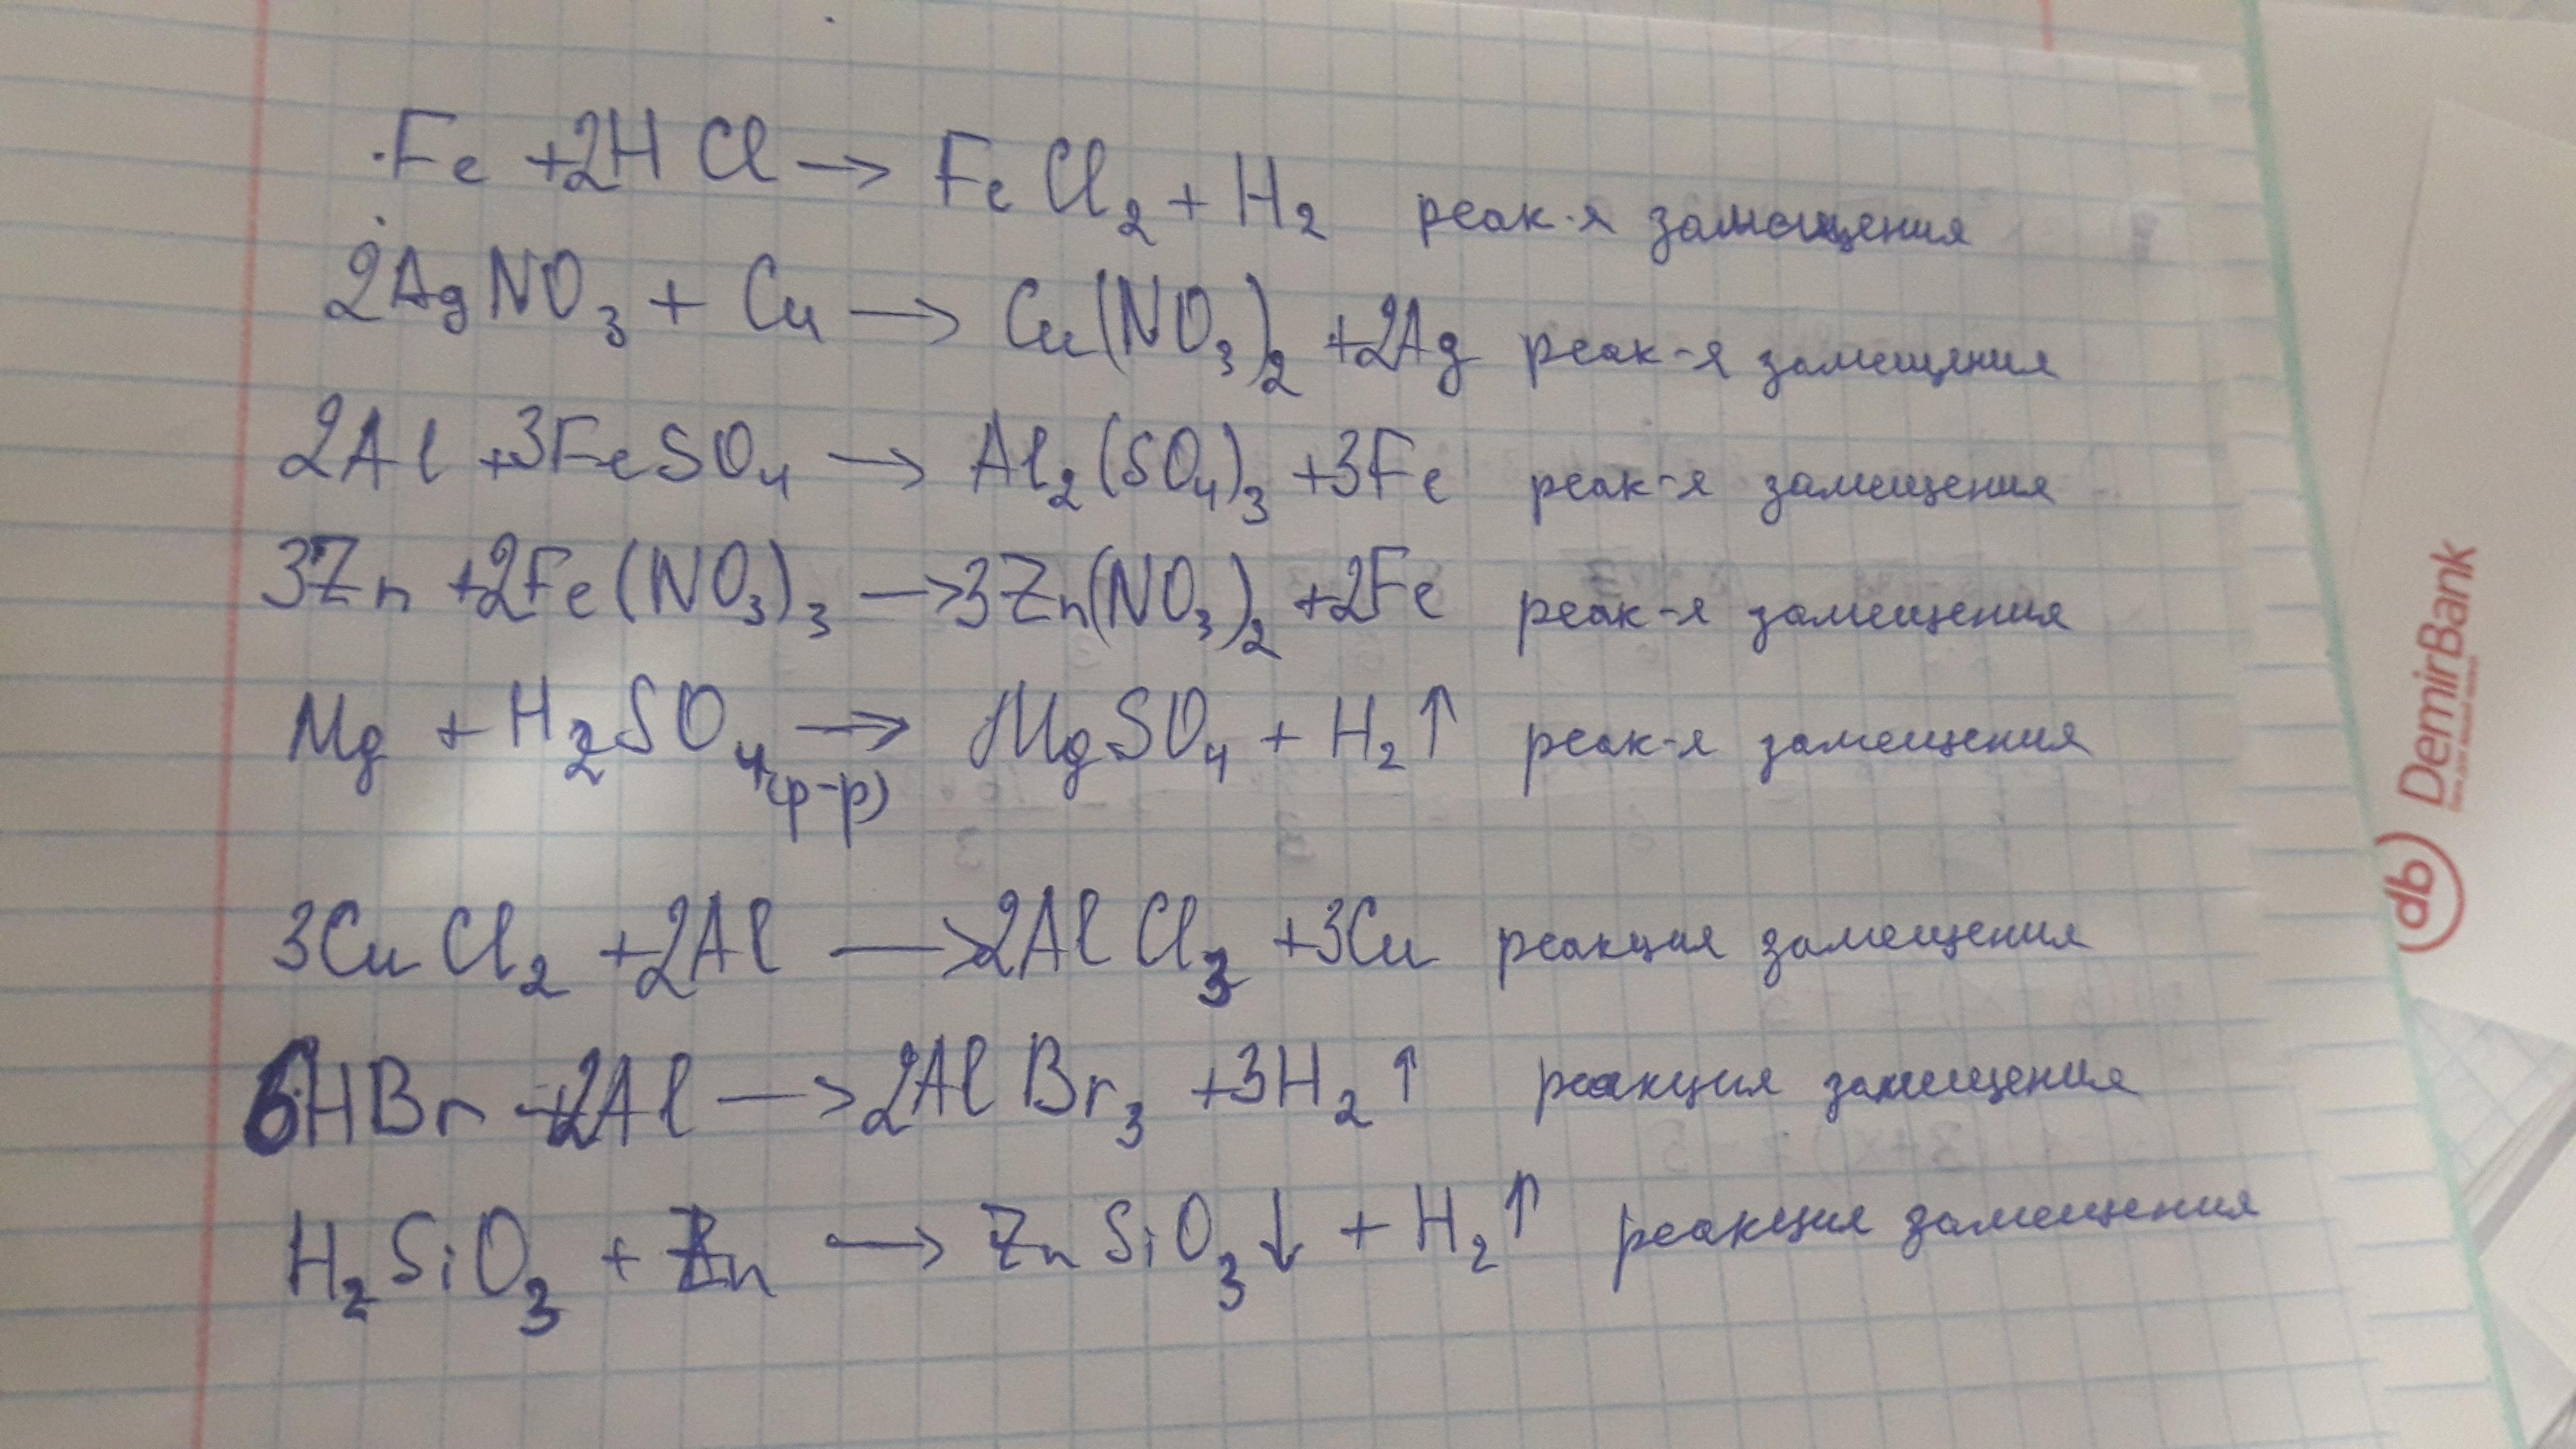 Fe + 2HCl → FeCl₂ + H₂ реак-я замещения
2AgNO₃ + Cu → Cu(NO₃)₂ + 2Ag реак-я замещения
2Al + 3FeSO₄ → Al₂(SO₄)₃ + 3Fe реак-я замещения
3Zn + 2Fe(NO₃)₃ → 3Zn(NO₃)₂ + 2Fe реак-я замещения
Mg + H₂SO₄(р-р) → MgSO₄ + H₂↑ реак-я замещения
3CuCl₂ + 2Al → 2AlCl₃ + 3Cu реакция замещения
6HBr + 2Al → 2AlBr₃ + 3H₂↑ реакция замещения
H₂SiO₃ + Zn → ZnSiO₃↓ + H₂↑ реакция замещения
db DemirBank